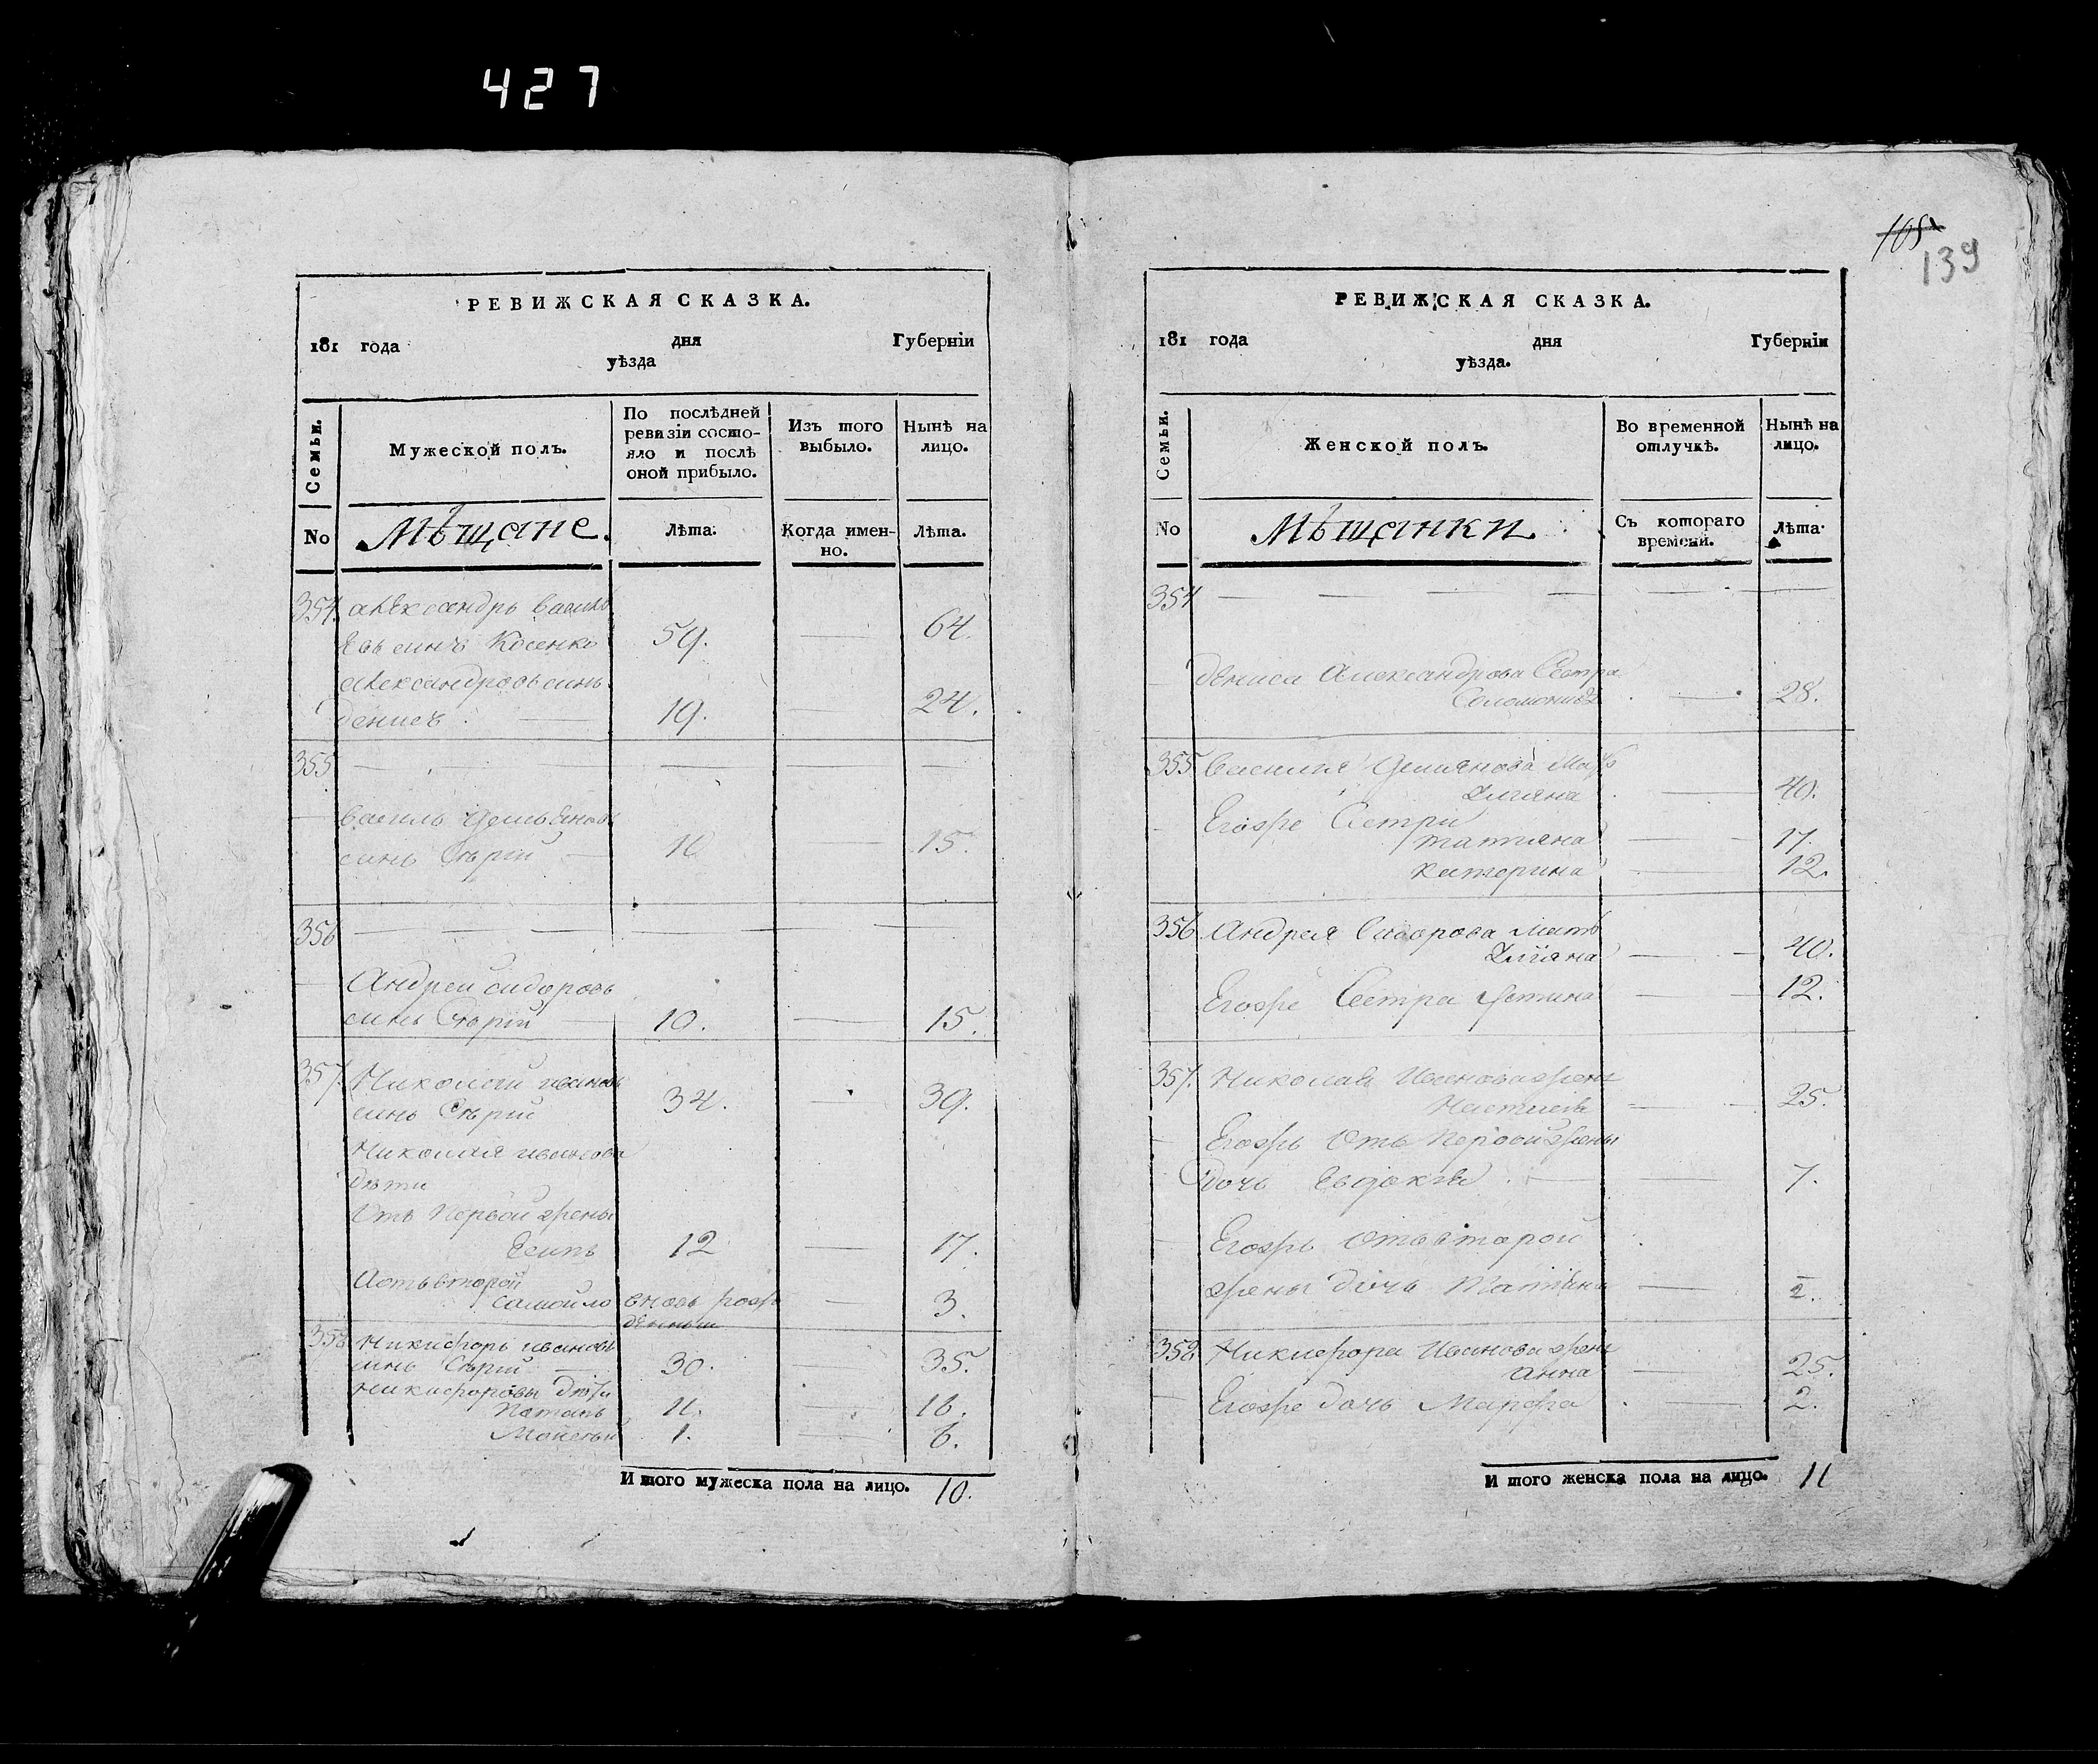 427
РЕВИЖСКАЯ СКАЗКА.
181 года дня Губерніи
уѣзда
Семьи.
Мужеской полъ.
По послѣдней ревизіи состо-
яло и послѣ оной прибыло.
Изъ того выбыло.
Нынѣ на лицо.
No
Мѣщане.
Лѣта.
Когда имен-
но.
Лѣта.
354. Александръ Василь
евъ синъ Косенко 59. 64.
Александровъ синъ
Денисъ 19. 24.
355
Василь Демьяновъ
синъ Сѣрій 10 15.
356
Андрей Сидоровъ
синъ Сѣрій 10. 15.
357. Николай Ивановъ
синъ Сѣрій 34. 39.
Николая Иванова
дѣти
Отъ Первой жены
Есипъ 12 17.
А отъ второй
Самойло вновь рож
денный 3.
358 Никифоръ Ивановъ
синъ Сѣрій 30. 35.
Никифоровы дѣти
11. 16.
Мойсей 1. 6.
И того мужеска пола на лицо. 10.
105
139
РЕВИЖСКАЯ СКАЗКА.
181 года дня Губерніи
уѣзда.
Семьи.
Женской полъ.
Во временной отлучкѣ.
Нынѣ на лицо.
No
Мѣщанки
Съ котораго времени.
Лѣта
354
Дениса Александрова Сестра
28.
355 Василия Демянова Мать
40.
Егожъ Сестри
Татияна 17.
Катерина 12.
356 Андрея Сидорова Мать
40.
Егоже Сестра 12.
357. Николая Иванова жена
Настасія 25.
Егожъ Отъ Первой жены
дочь Евдокія 7.
Егожъ Отъ второй
жены дочь Татіяна 2.
358 Никифора Иванова жена
Анна 25.
Егоже дочь Марфа 2.
И того женска пола на лицо. 11